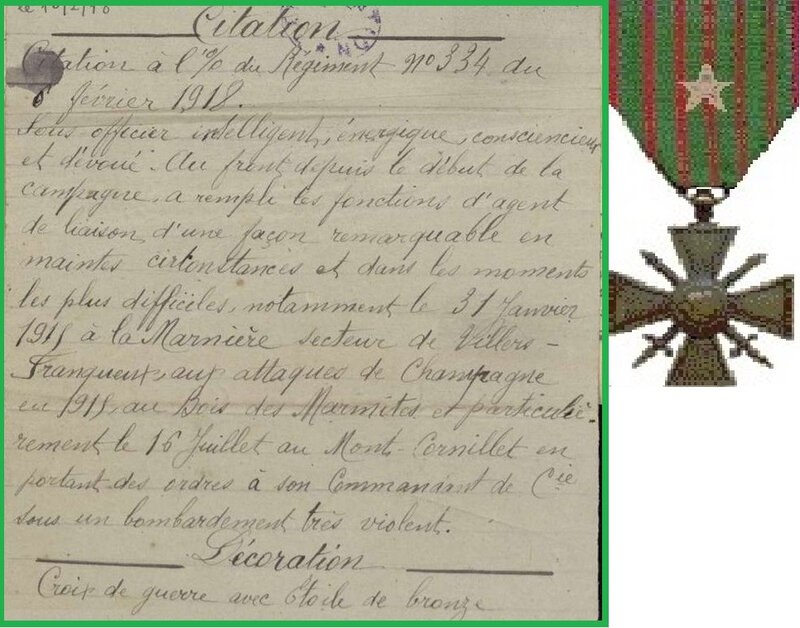 le 10/2/18
Citation
Citation à l'% du Régiment No 334 du
6 février 1918.
Sous officier intelligent, énergique, consciencieux
et dévoué. Au front depuis le début de la
campagne, a rempli les fonctions d'agent
de liaison d'une façon remarquable en
maintes circonstances et dans les moments
les plus difficiles, notamment le 31 Janvier
1915 à la Marnière secteur de Villers-
Franqueux, aux attaques de Champagne
en 1915, au Bois des Marmites et particuliè-
rement le 16 Juillet au Mont-Cornillet en
portant des ordres à son Commandant de Cie
sous un bombardement très violent.
Décoration
Croix de guerre avec Etoile de bronze